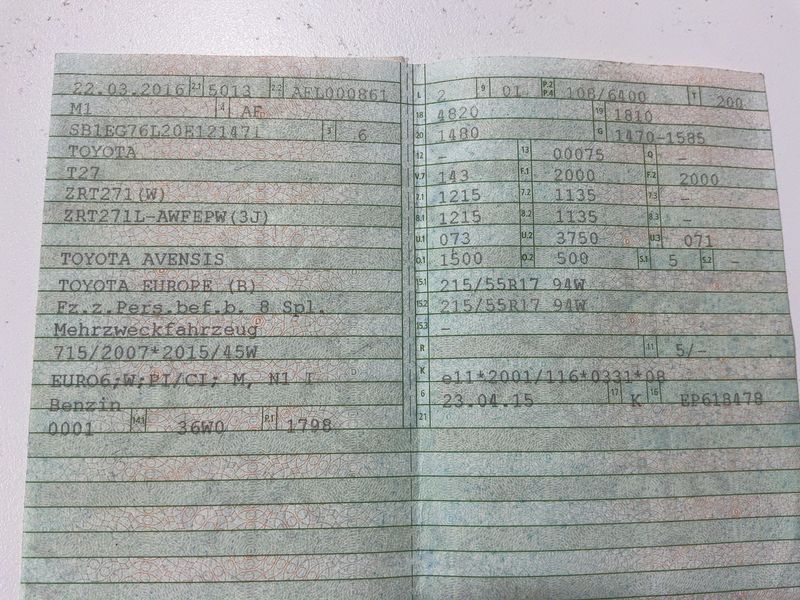 22.03.2016 2.1 5013 2.2 AEL000861
M1 4 AF
SB1EG76L20E121471 3 6
TOYOTA
T27
ZRT271(W)
ZRT271L-AWFEPW(3J)
TOYOTA AVENSIS
TOYOTA EUROPE (B)
Fz.z.Pers.bef.b. 8 Spl.
Mehrzweckfahrzeug
715/2007*2015/45W
EURO6;W;PI/CI; M, N1 I
Benzin
0001 14.1 36W0 P.1 1798
L 2 9 01 P.2 P.4 108/6400 T 200
18 4820 19 1810
20 1480 G 1470-1585
12 - 13 00075 Q -
V.7 143 F.1 2000 F.2 2000
7.1 1215 7.2 1135 7.3 -
8.1 1215 8.2 1135 8.3 -
U.1 073 U.2 3750 U.3 071
O.1 1500 O.2 500 S.1 5 S.2 -
15.1 215/55R17 94W
15.2 215/55R17 94W
15.3 -
R 11 5/-
K e11*2001/116*0331*08
6 23.04.15 17 K 16 EP618478
21